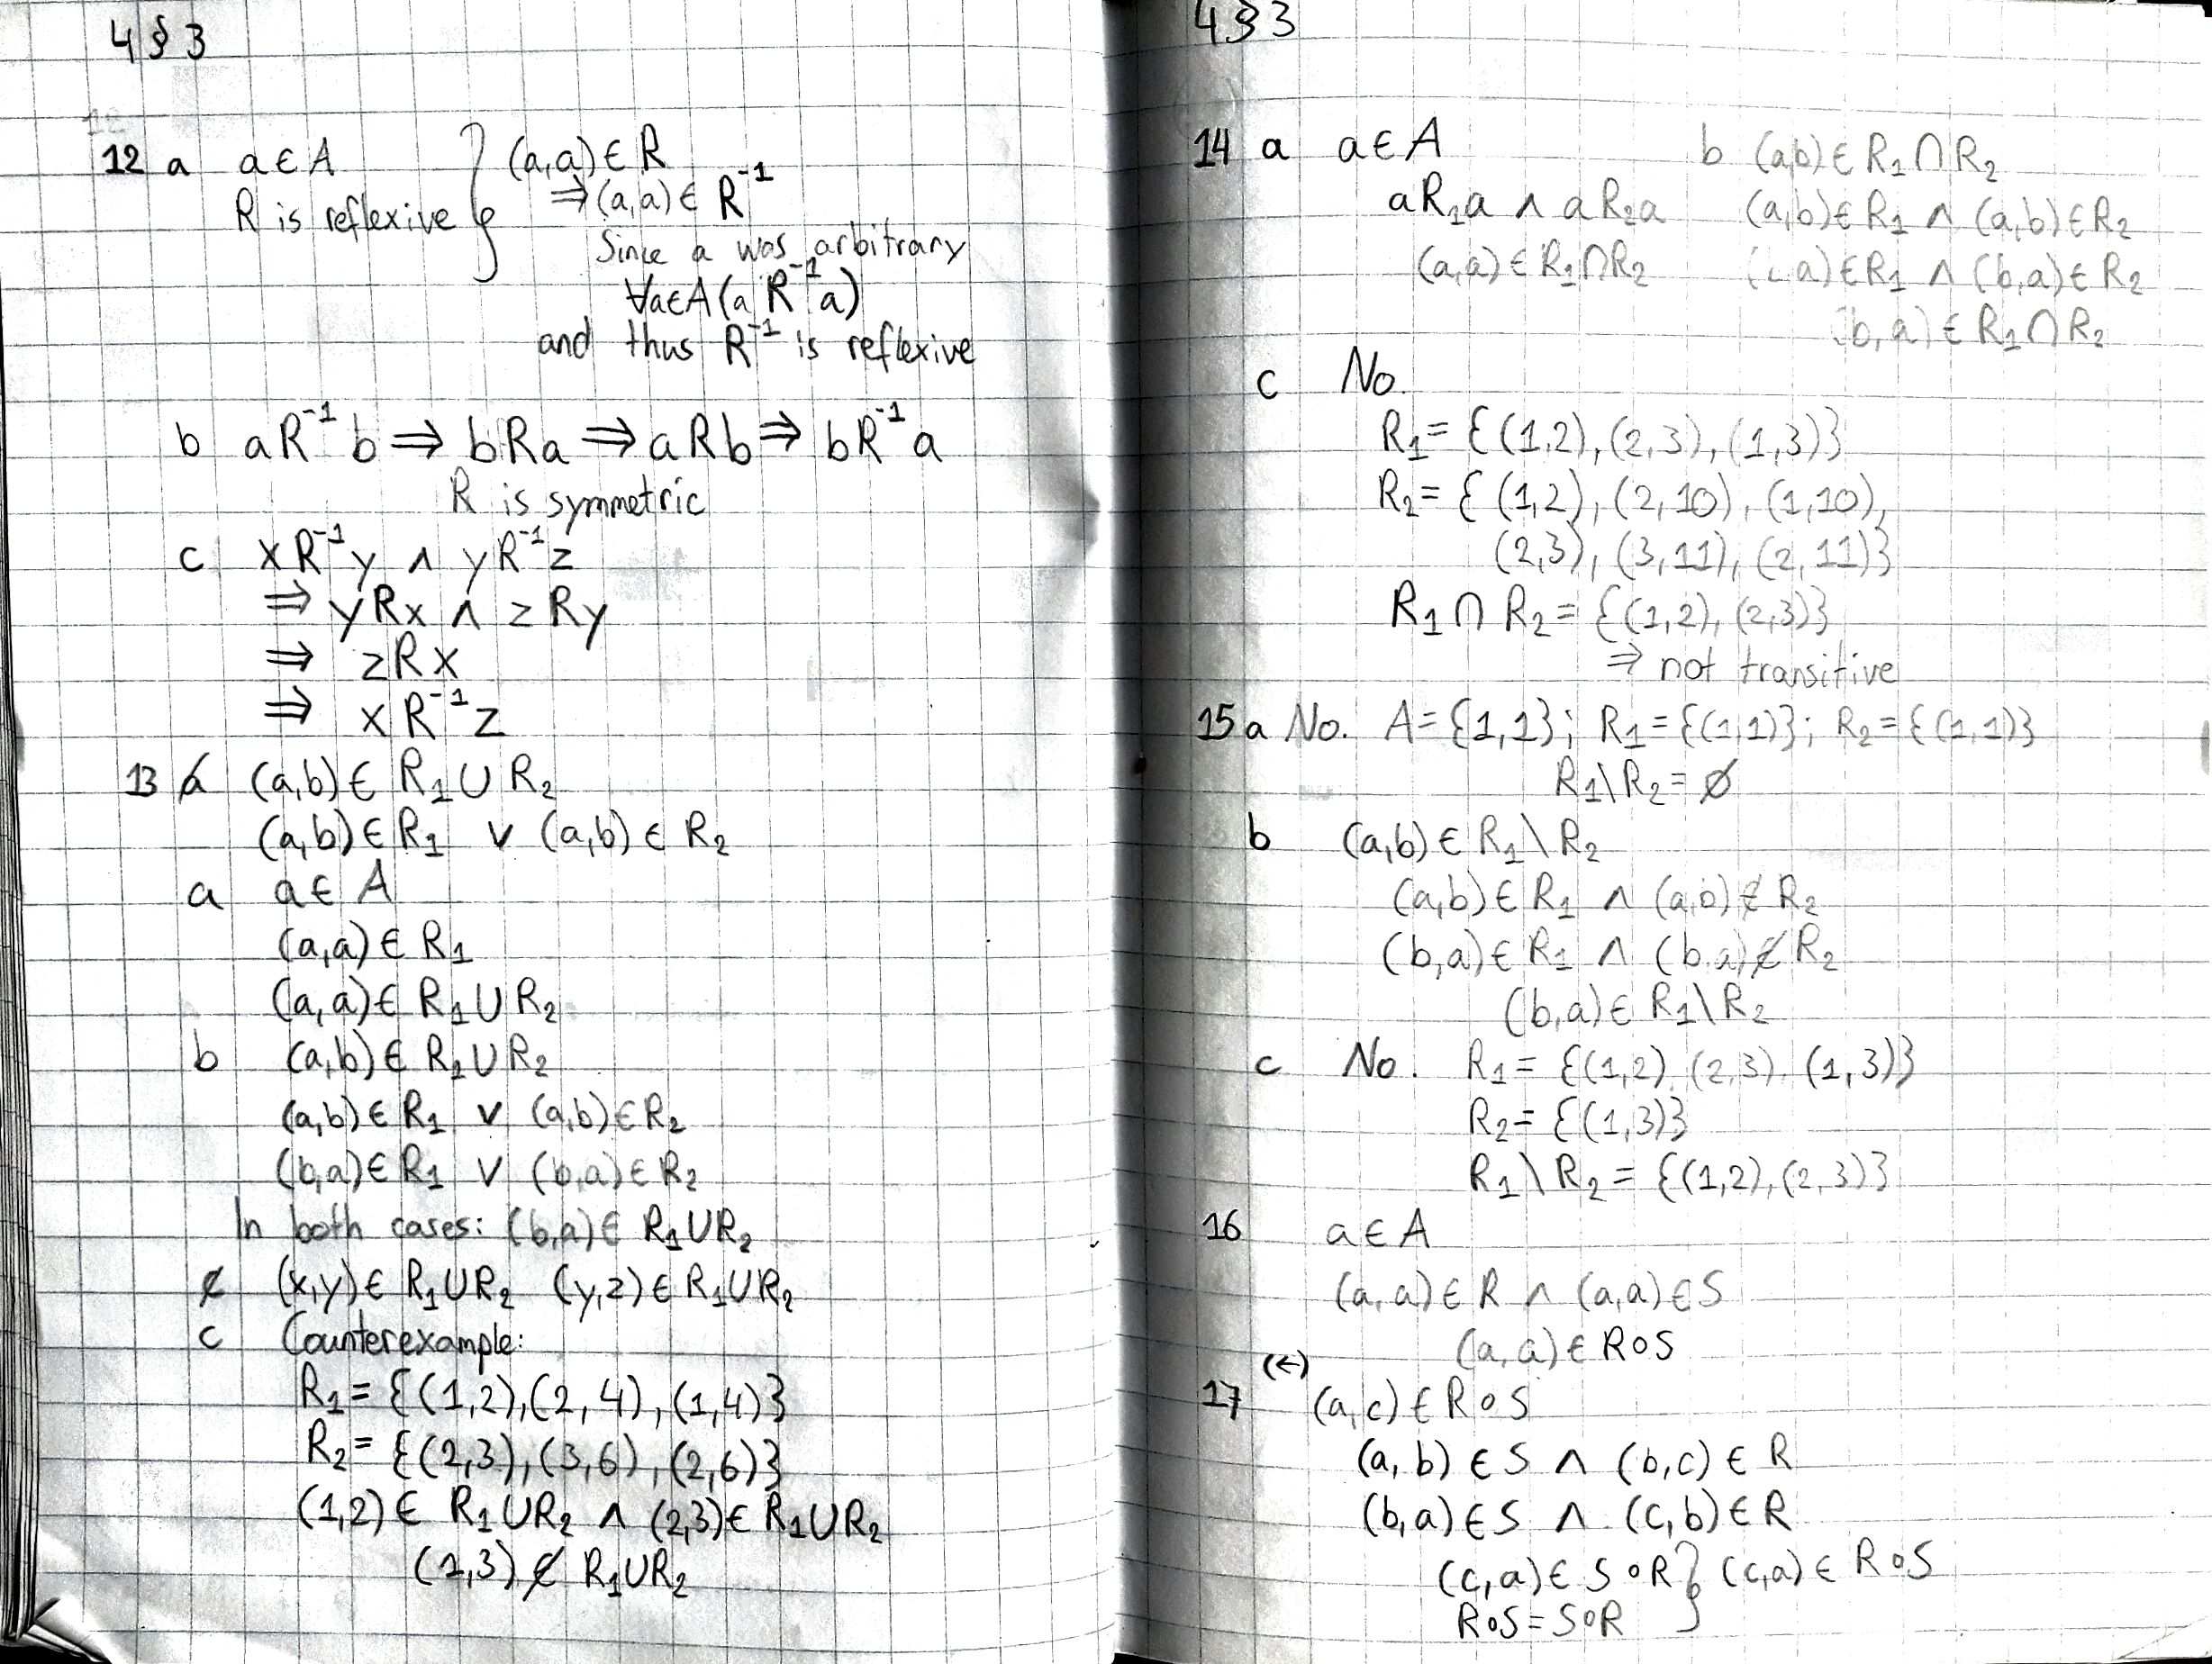 4 § 3
12 a a ∈ A } (a,a) ∈ R
R is reflexive ⇒ (a,a) ∈ R⁻¹
Since a was arbitrary
∀a∈A (a R⁻¹ a)
and thus R⁻¹ is reflexive
b aR⁻¹b ⇒ bRa ⇒ aRb ⇒ bR⁻¹a
R is symmetric
c xR⁻¹y ∧ yR⁻¹z
⇒ yRx ∧ zRy
⇒ zRx
⇒ xR⁻¹z
13 a (a,b) ∈ R₁ ∪ R₂
(a,b) ∈ R₁ ∨ (a,b) ∈ R₂
a a ∈ A
(a,a) ∈ R₁
(a,a) ∈ R₁ ∪ R₂
b (a,b) ∈ R₁ ∪ R₂
(a,b) ∈ R₁ ∨ (a,b) ∈ R₂
(b,a) ∈ R₁ ∨ (b,a) ∈ R₂
In both cases: (b,a) ∈ R₁∪R₂
c (x,y) ∈ R₁∪R₂ (y,z) ∈ R₁∪R₂
c Counterexample:
R₁ = {(1,2),(2,4),(1,4)}
R₂ = {(2,3),(3,6),(2,6)}
(1,2) ∈ R₁∪R₂ ∧ (2,3) ∈ R₁∪R₂
(1,3) ∉ R₁∪R₂
4 § 3
14 a a ∈ A
aR₁a ∧ aR₂a
(a,a) ∈ R₁∩R₂
b (a,b) ∈ R₁ ∩ R₂
(a,b) ∈ R₁ ∧ (a,b) ∈ R₂
(b,a) ∈ R₁ ∧ (b,a) ∈ R₂
(b,a) ∈ R₁∩R₂
c No.
R₁ = {(1,2),(2,3),(1,3)}
R₂ = {(1,2),(2,10),(1,10),
(2,3),(3,11),(2,11)}
R₁ ∩ R₂ = {(1,2),(2,3)}
⇒ not transitive
15 a No. A={1,1}; R₁={(1,1)}; R₂={(1,1)}
R₁\R₂ = ∅
b (a,b) ∈ R₁ \ R₂
(a,b) ∈ R₁ ∧ (a,b) ∉ R₂
(b,a) ∈ R₁ ∧ (b,a) ∉ R₂
(b,a) ∈ R₁\R₂
c No. R₁ = {(1,2),(2,3),(1,3)}
R₂ = {(1,3)}
R₁ \ R₂ = {(1,2),(2,3)}
16 a ∈ A
(a,a) ∈ R ∧ (a,a) ∈ S
(a,a) ∈ R∘S
(←)
17 (a,c) ∈ R∘S
(a,b) ∈ S ∧ (b,c) ∈ R
(b,a) ∈ S ∧ (c,b) ∈ R
(c,a) ∈ S∘R } (c,a) ∈ R∘S
R∘S = S∘R